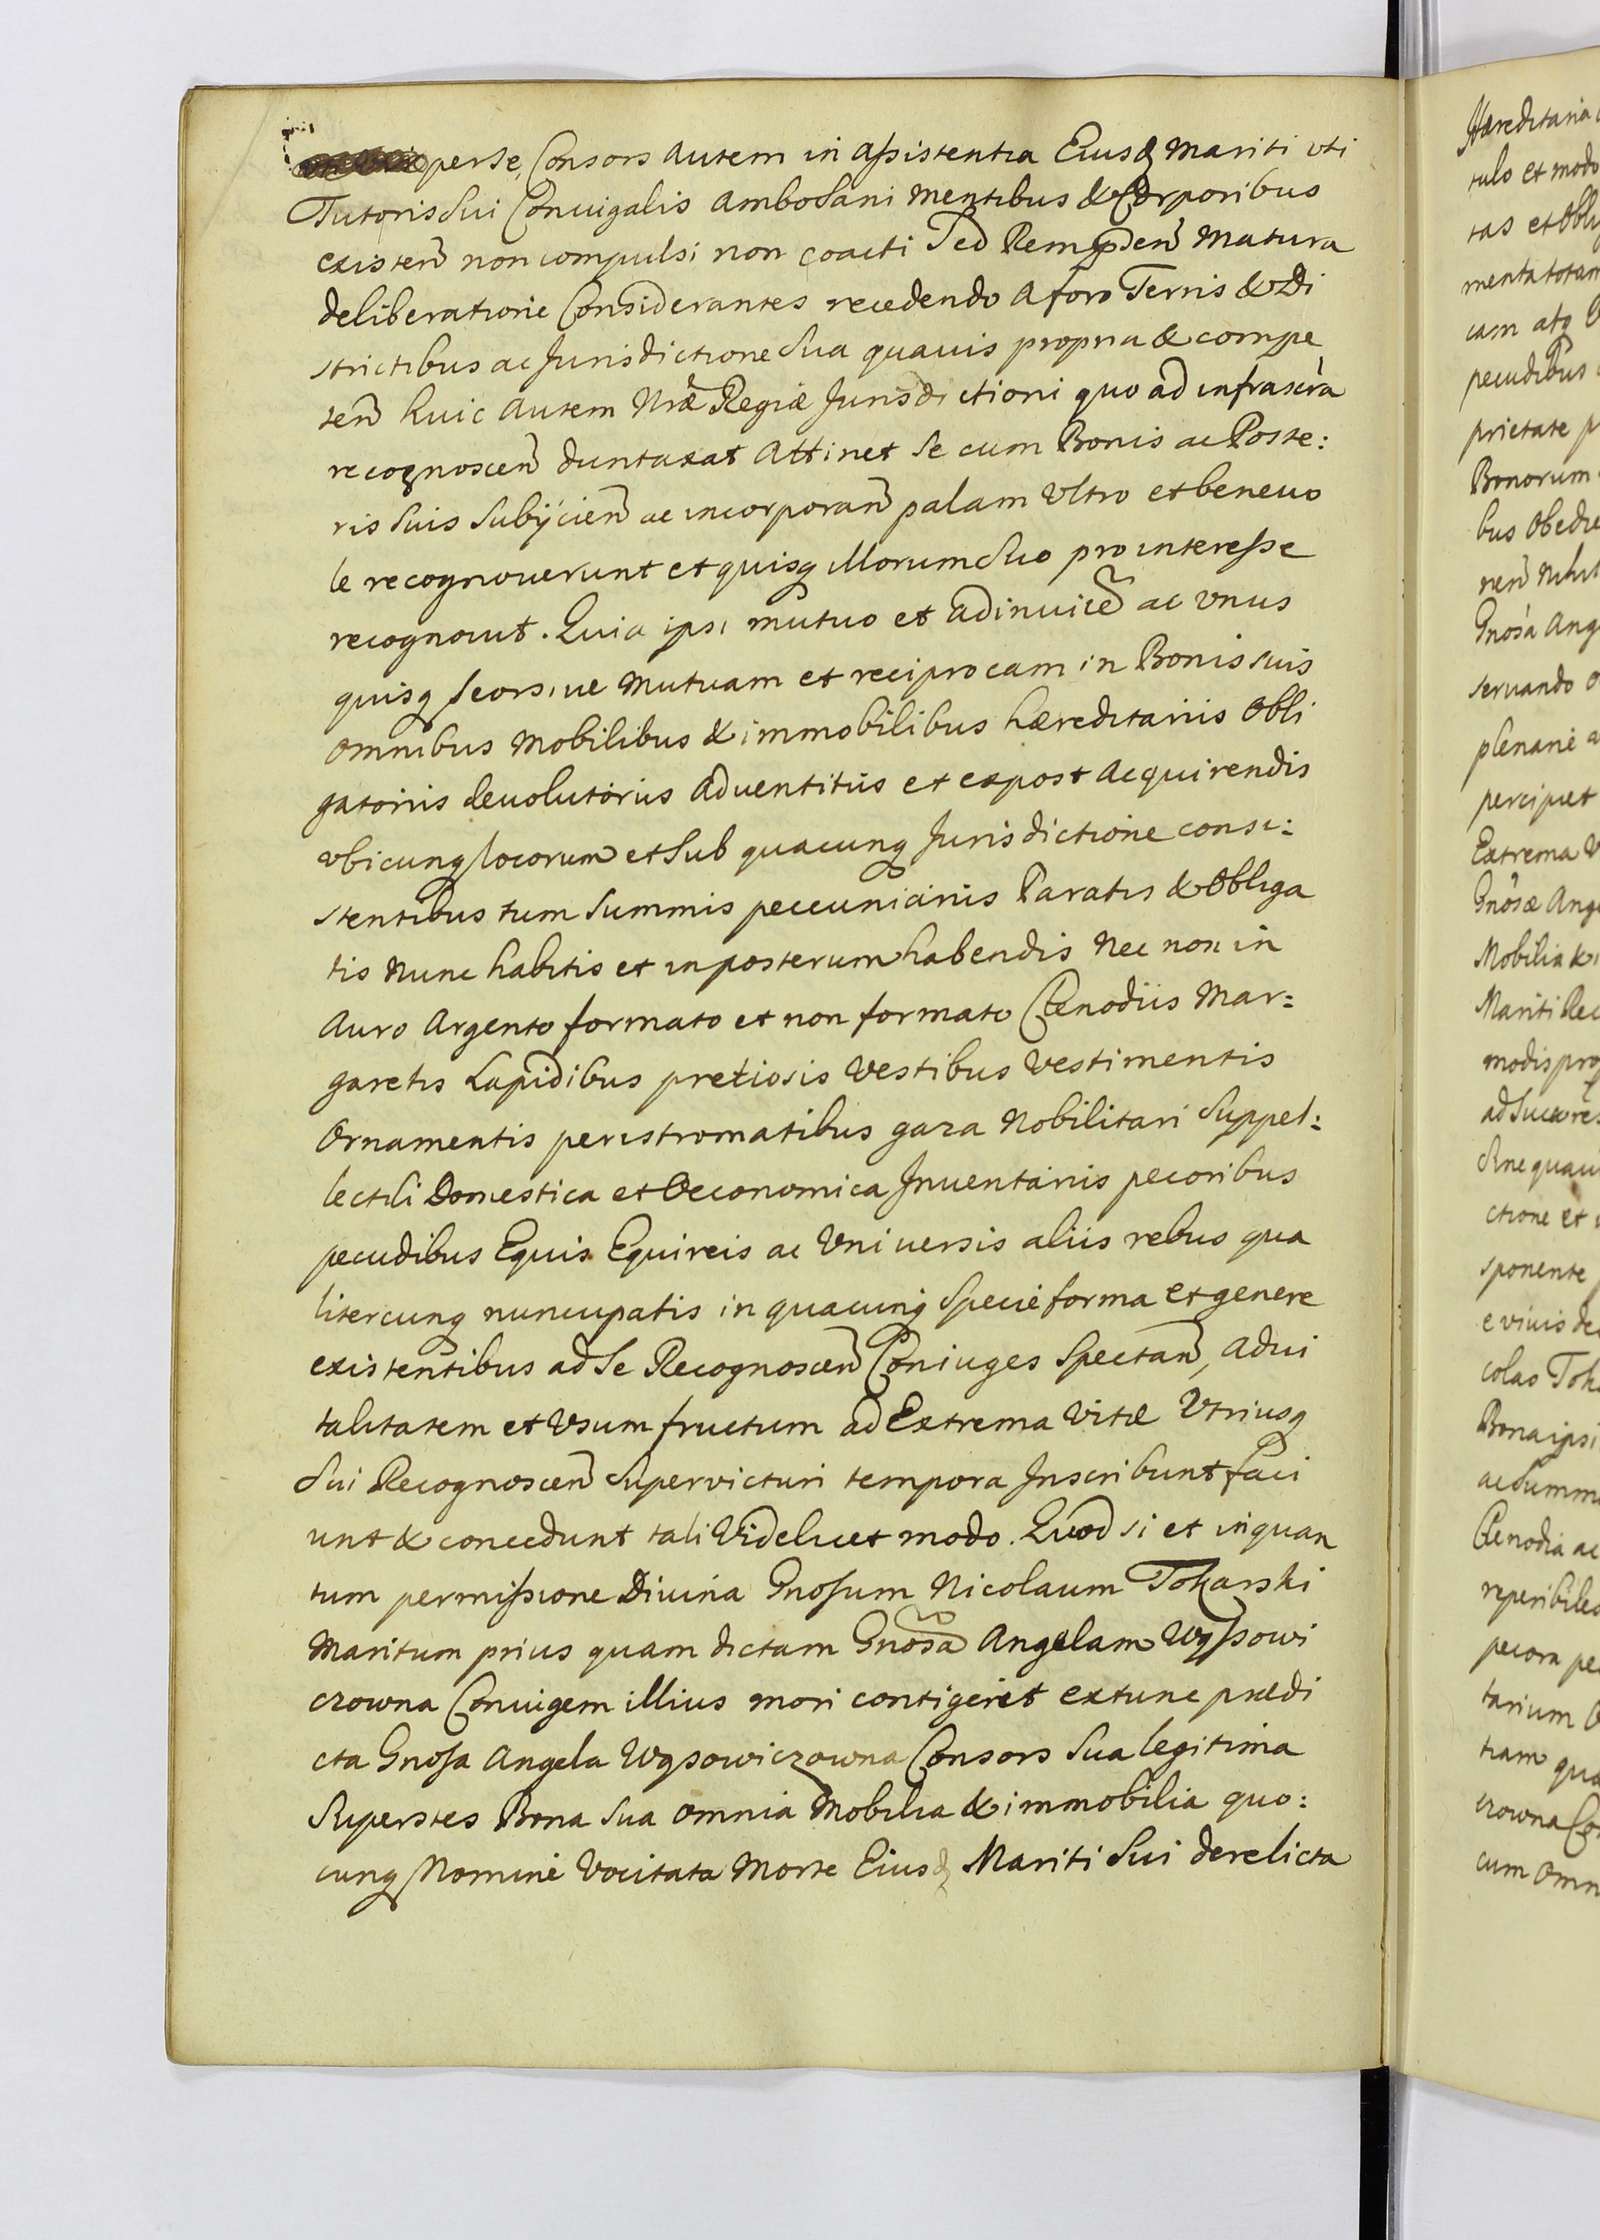 per se, Consors autem in assistentia Eiusq Mariti uti
Tutoris Sui Coniugalis ambo Sani mentibus & Corporibus
existen̄ non compulsi non coacti Sed Rem praeden̄ matura
deliberatione Considerantes recedendo a foro Terris & Di
strictibus ac Jurisdictione Sua quauis propria & compe
ten̄ huic autem Nr̄æ Regiæ Jurisdictioni quo ad infrascr̄a
recognoscen̄ duntaxat attinet Se cum Bonis ac Poste:
ris Suis Subijcien̄ ac incorporan̄ palam Ultro et beneuo
le recognouerunt et quisq illorum Suo pro interesse
recognouit. Quia ipsi mutuo et adinuice᷉ ac unus
quisq seorsiue Mutuam et reciprocam in Bonis suis
omnibus Mobilibus & immobilibus hæreditariis Obli
gatoriis deuolutoriis aduentitiis et expost acquirendis
ubicunq locorum et Sub quacunq Jurisdictione consi:
stentibus tum Summis peccuniariis Paratis & Obliga
tis Nunc habitis et inposterum habendis Nec non in
Auro Argento formato et non formato Clenodiis Mar:
garetis Lapidibus pretiosis Vestibus Vestimentis
Ornamentis peristromatibus gaza Nobilitari Suppel:
lectili Domestica et Oeconomica Inuentariis pecoribus
pecudibus Equis Equireis ac Uniuersis aliis rebus qua
litercunq nuncupatis in quacunq Specie forma et genere
existentibus ad Se Recognoscen̄ Coniuges Spectan̄, ad ui
talitatem et Usum fructum ad Extrema Vitæ Utriusq
Sui Recognoscen̄ Supervicturi tempora Inscribunt faci
unt & concedunt tali Videlicet modo. Quod si et inquan
tum permissione Divina Gnosum Nicolaum Tokarski
Maritum prius quam dictam Gnosa᷉ Angelam Wąssowi
czowna Coniugem illius mori contigerit extunc prædi
cta Gnosa Angela Wąsowiczowna Consors Sua legitima
Superstes Bona Sua omnia Mobilia & immobilia quo:
cunq Nomine Vocitata Morte Eiusq Mariti Sui derelicta
Hæreditaria
tulo et modo
tas et Obli
menta totam
cam atq
pecudibus
prietate
Bonorum
bus Obedie
nen̄ Nihil
Gnosa Ang
seruando
plenarie
percipiet
Extrema
Gnosæ Ange
Mobilia &
Mariti Rec
modis pro
ad Succores
Sine quaui
ctione et
sponente
e viuis de
colao Tok
Bona ipsi
ac Summ
Clenodia ac
reperibiles
pecora pe
tarium
tiam qua
czowna Co
cum omn